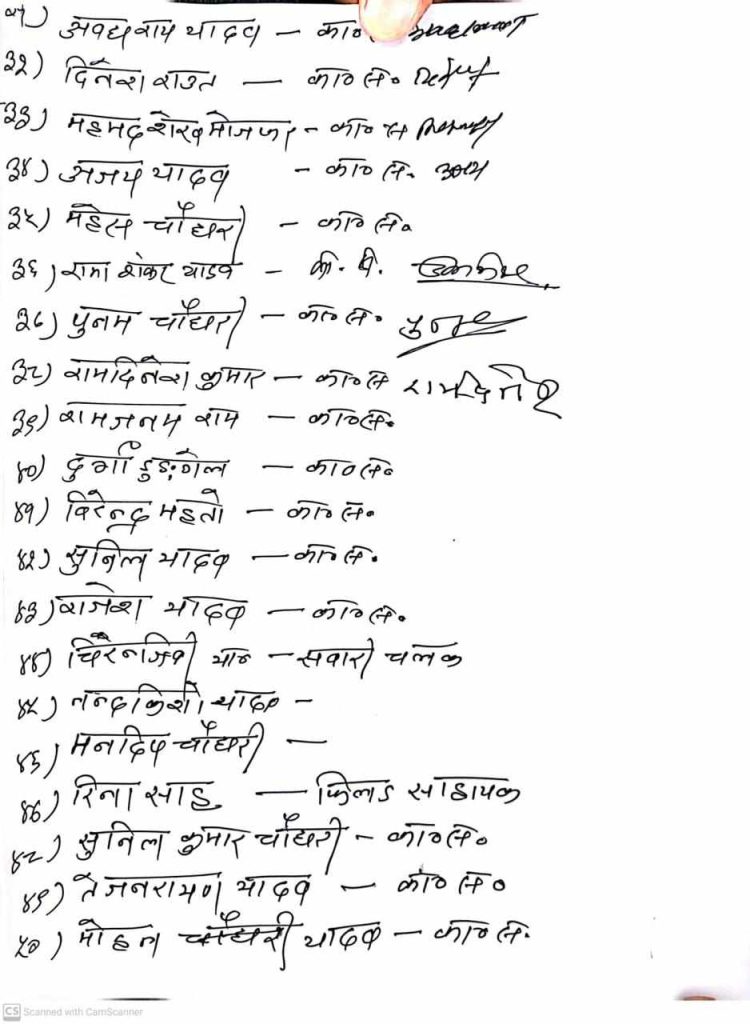 अवधराय यादव - का०
३२) दिनेश राउत - का० स०
३३) महमद शेख मोजफर - का० स
३४) अजय यादव - का० स. अजय
३५) महेस चौधरी - का० स०
३६) रामा शंकर यादव -
३७) पुनम चौधरी - का० स० पुनम
३८) रामदिनेश कुमार - का० स रामदिनेश
३९) रामजनम राम - का० स.
४०) दुर्गा डुङ्गेल - का० स०
४१) विरेन्द्र महतो - का० स०
४२) सुनिल यादव - का० स.
४३) राजेश यादव - का० स.
४४) चिरेन्जिवी - सवारी चलक
४५) नन्दकिशो यादव -
४६) मनदिप चौधरी -
४७) रिना साह - फिलड साहायक
४८) सुनिल कुमार चौधरी - का० स०
४९) तेजनरायण यादव - का० स०
५०) मोहन चौधरी यादव - का० स.
CS Scanned with CamScanner